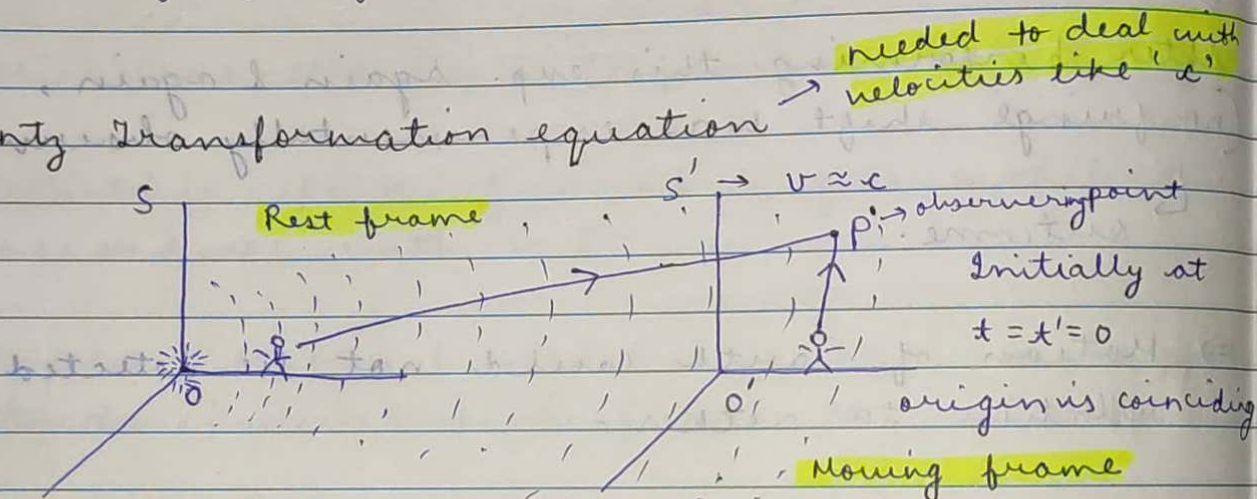 needed to deal with
velocities like 'c'
ntz Transformation equation →
S
Rest frame
S' → v ≈ c
P' → observering point
Initially at
t = t' = 0
O
O'
origin is coinciding
Moving frame